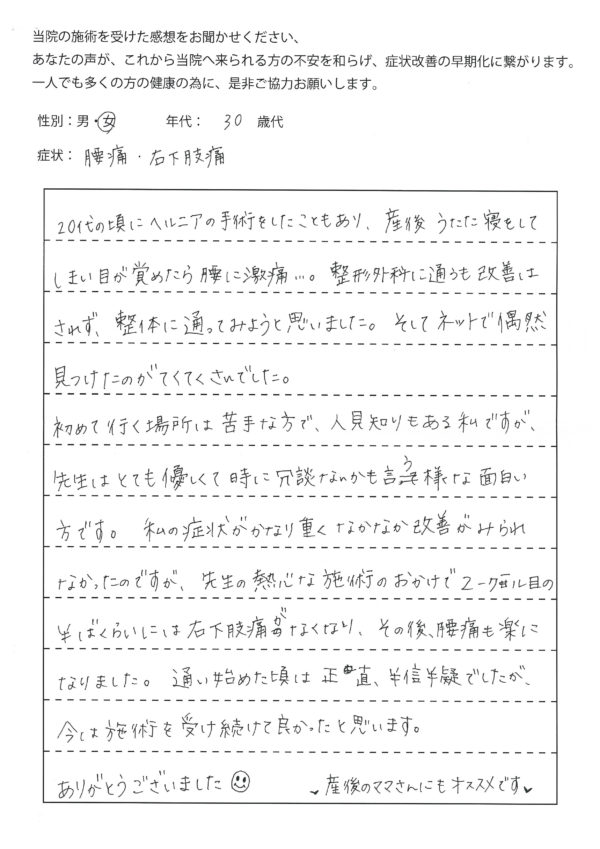 当院の施術を受けた感想をお聞かせください、
あなたの声が、これから当院へ来られる方の不安を和らげ、症状改善の早期化に繋がります。
一人でも多くの方の健康の為に、是非ご協力お願いします。
性別：男・女　年代：30 歳代
症状：腰痛・右下肢痛
20代の頃にヘルニアの手術をしたこともあり、産後 うたた寝をして
しまい目が覚めたら腰に激痛…。整形外科に通うも改善は
されず、整体に通ってみようと思いました。そしてネットで偶然
見つけたのがてくてくさんでした。
初めて行く場所は苦手な方で、人見知りもある私ですが、
先生はとても優しくて時に冗談なんかも言う様な面白い
方です。私の症状がかなり重くなかなか改善がみられ
なかったのですが、先生の熱心な施術のおかげで2クール目の
半ばくらいには右下肢痛がなくなり、その後、腰痛も楽に
なりました。通い始めた頃は正直、半信半疑でしたが、
今は施術を受け続けて良かったと思います。
ありがとうございました　産後のママさんにもオススメです